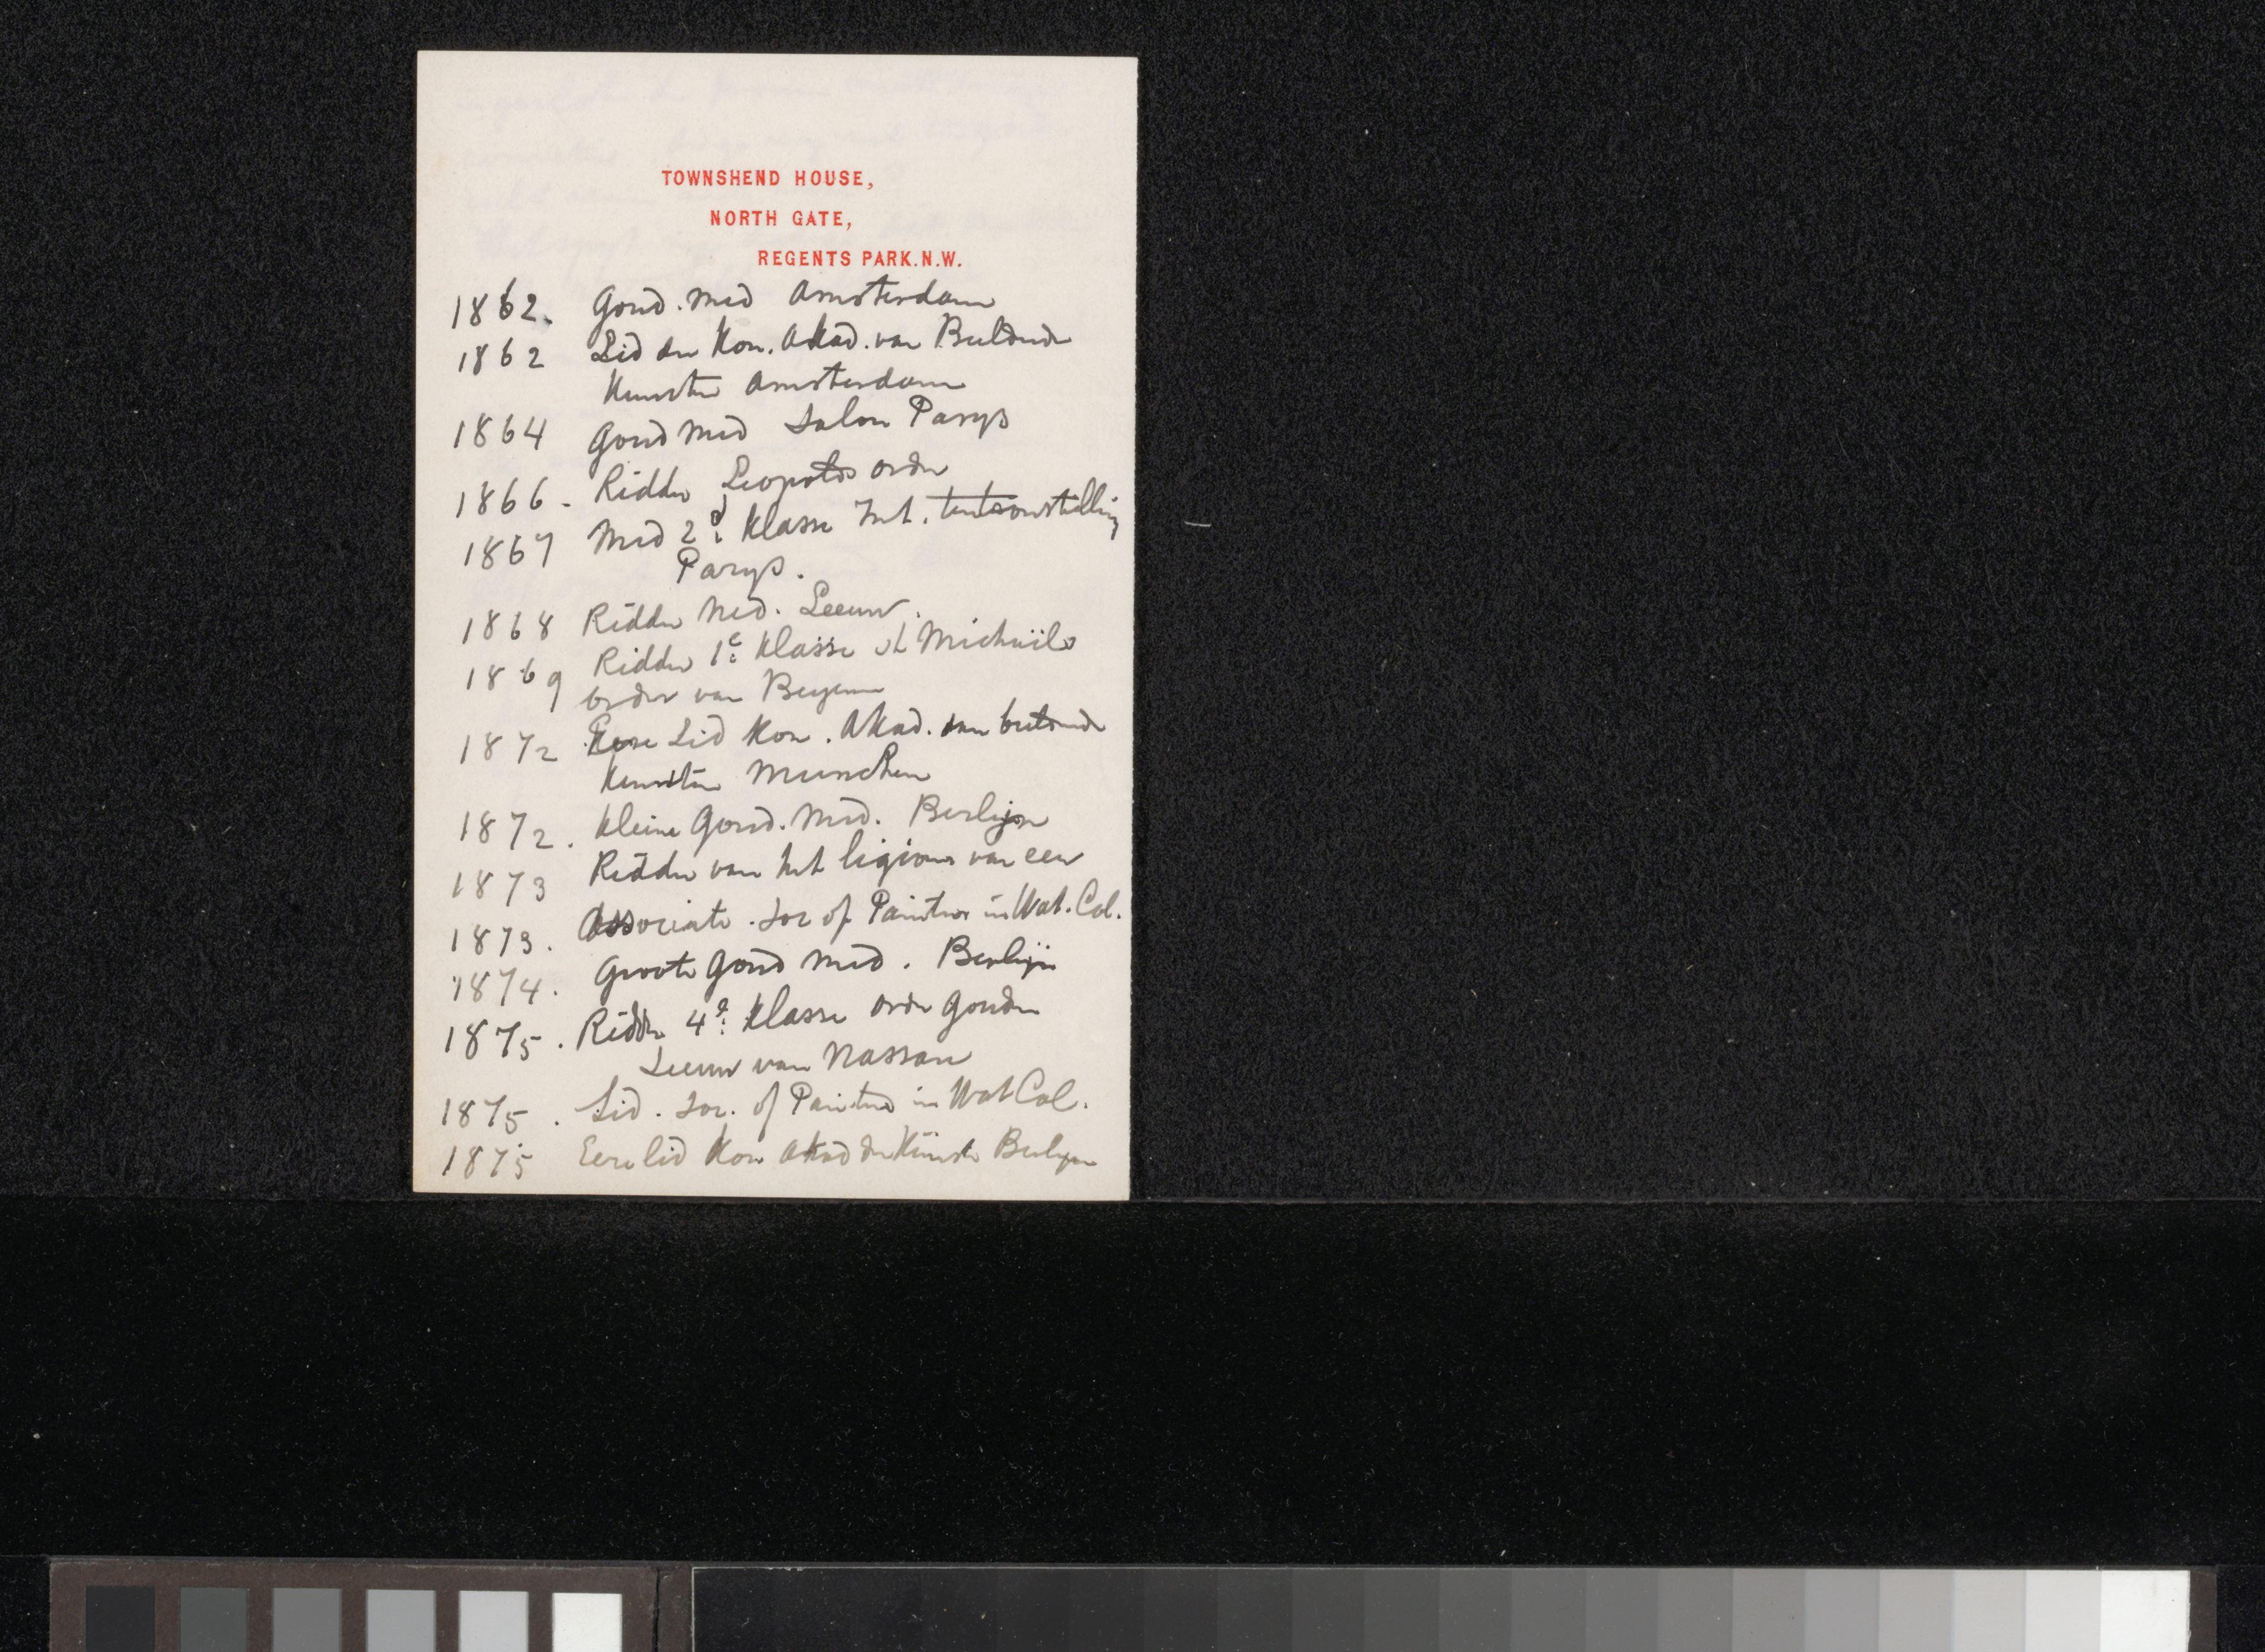 TOWNSHEND HOUSE,
NORTH GATE,
REGENTS PARK.N.W.
1862. Goud. Med Amsterdam
1862 Lid der Kon. Akad. van Beeldende
Kunsten Amsterdam
1864 Goud Med Salon Parys
1866 - Ridder Leopolds order
1867 Med 2e: Klasse Int. tentoonstelling
Parys.
1868 Ridder Ned. Leeuw.
1869 Ridder 1e: Klasse St Michaels
order van Beyeren
1872 Eere Lid Kon. Akad. van beeldende
Kunsten Munchen
1872. Kleine Goud. Med. Berlijn
1873 Ridder van het legioen van eer
1873. Associate. Soc of Painters in Wat. Col.
1874. Groote Goud Med. Berlijn
1875. Ridder 4e: Klasse order Gouden
Leeuw van Nassau
1875. Lid. Soc. of Painters in Wat Col.
1875 Eere lid Kon Akad der Kunsten Berlyn